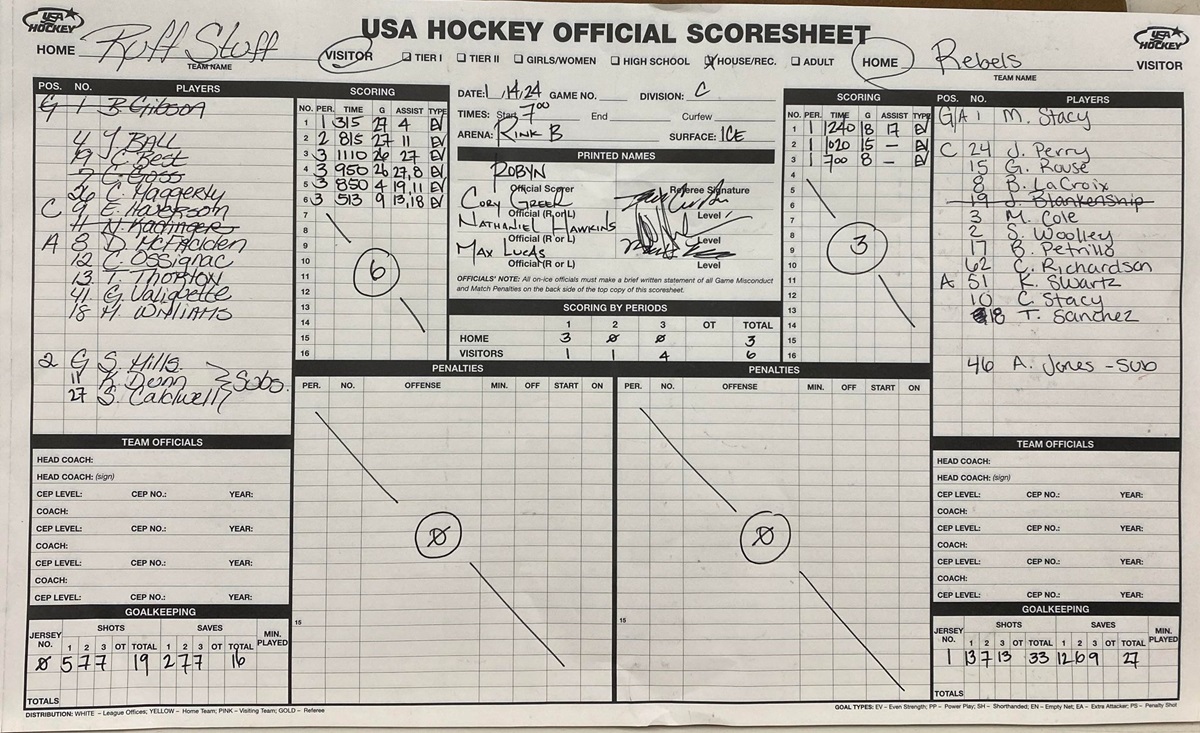 USA HOCKEY
USA HOCKEY OFFICIAL SCORESHEET
USA HOCKEY
HOME Ruff Stuff VISITOR
TEAM NAME
☐ TIER I ☐ TIER II ☐ GIRLS/WOMEN ☐ HIGH SCHOOL ☑ HOUSE/REC. ☐ ADULT
HOME Rebels VISITOR
TEAM NAME
POS. NO. PLAYERS
G 1 B. Gibson
4 J. BALL
19 C. Best
7 C. Goss
26 C. Haggerty
C 9 E. Haverson
11 N. Kadinger
A 8 D. McFadden
12 C. Ossignac
13 T. THORTON
41 G. Valiquette
18 H. WILLIAMS
2 G S. Hills
11 K. Dunn
27 S. Caldwell
Subs.
SCORING
NO. PER. TIME G ASSIST TYPE
1 1 315 27 4 EV
2 2 815 27 11 EV
3 3 1110 26 27 EV
4 3 950 26 27,8 EV
5 3 850 4 19,11 EV
6 3 513 9 13,18 EV
7
8
9
10
11
12
13
14
15
16
6
DATE: 1/14/24 GAME NO. DIVISION: C
TIMES: Start 7:00 End Curfew
ARENA: RINK B SURFACE: ICE
PRINTED NAMES
ROBYN
Official Scorer Referee Signature
CORY GREER
Official (R or L) Level
NATHANIEL HAWKINS
Official (R or L) Level
MAX LUCAS
Official (R or L) Level
OFFICIALS' NOTE: All on-ice officials must make a brief written statement of all Game Misconduct
and Match Penalties on the back side of the top copy of this scoresheet.
SCORING BY PERIODS
1 2 3 OT TOTAL
HOME 3 Ø Ø 3
VISITORS 1 1 4 6
SCORING
NO. PER. TIME G ASSIST TYPE
1 1 1240 8 17 EV
2 1 1020 15 – EV
3 1 700 8 – EV
4
5
6
7
8
9
10
11
12
13
14
15
16
3
POS. NO. PLAYERS
G/A 1 M. Stacy
C 24 J. Perry
15 G. Rouse
8 B. LaCroix
19 J. Blankenship
3 M. Cole
2 S. Woolley
17 B. Petrillo
62 C. Richardson
A 51 K. Swartz
10 C. Stacy
18 T. Sanchez
46 A. Jones - Sub
PENALTIES
PER. NO. OFFENSE MIN. OFF START ON
15
Ø
PENALTIES
PER. NO. OFFENSE MIN. OFF START ON
15
Ø
TEAM OFFICIALS
HEAD COACH:
HEAD COACH: (sign)
CEP LEVEL: CEP NO.: YEAR:
COACH:
CEP LEVEL: CEP NO.: YEAR:
COACH:
CEP LEVEL: CEP NO.: YEAR:
COACH:
CEP LEVEL: CEP NO.: YEAR:
GOALKEEPING
JERSEY NO. SHOTS SAVES MIN. PLAYED
1 2 3 OT TOTAL 1 2 3 OT TOTAL
Ø 5 7 7 19 2 7 7 16
TOTALS
TEAM OFFICIALS
HEAD COACH:
HEAD COACH: (sign)
CEP LEVEL: CEP NO.: YEAR:
COACH:
CEP LEVEL: CEP NO.: YEAR:
COACH:
CEP LEVEL: CEP NO.: YEAR:
COACH:
CEP LEVEL: CEP NO.: YEAR:
GOALKEEPING
JERSEY NO. SHOTS SAVES MIN. PLAYED
1 2 3 OT TOTAL 1 2 3 OT TOTAL
1 13 7 13 33 12 6 9 27
TOTALS
DISTRIBUTION: WHITE – League Offices; YELLOW – Home Team; PINK – Visiting Team; GOLD – Referee
GOAL TYPES: EV – Even Strength; PP – Power Play; SH – Shorthanded; EN – Empty Net; EA – Extra Attacker; PS – Penalty Shot